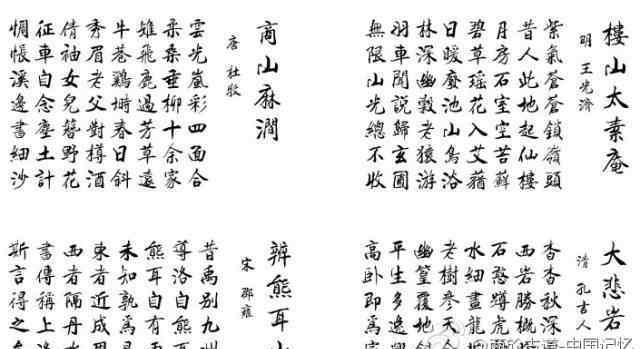 樓山太素庵
明 王光濟
紫氣蒼蒼鎖嶺頭
昔人此地起仙樓
月房石室空苔蘚
碧草瑤花入艾
日暖廢池山鳥浴
林深幽老猿游
羽車聞說歸玄圃
無限山光總不收
商山麻澗
唐 杜牧
雲光嵐彩四面合
柔桑垂柳十余家
雉飛鹿過芳草遠
牛巷鷄塒春日斜
秀眉老父對樽酒
倩袖女兒簪野花
征車自念塵土計
惆悵溪邊書細沙
大悲岩
清 孔吉人
杳杳秋深
西岩勝概
石憨蹲虎
水細畫龍
老樹參天
幽篁覆地
平生多逸
高臥即爲
辨熊耳山
宋 邵雍
昔禹別九州
導洛自熊
熊耳自有
未知孰爲
東者近成周
西者隔丹水
書傳稱上
斯言得之
@商於古道-中国记忆